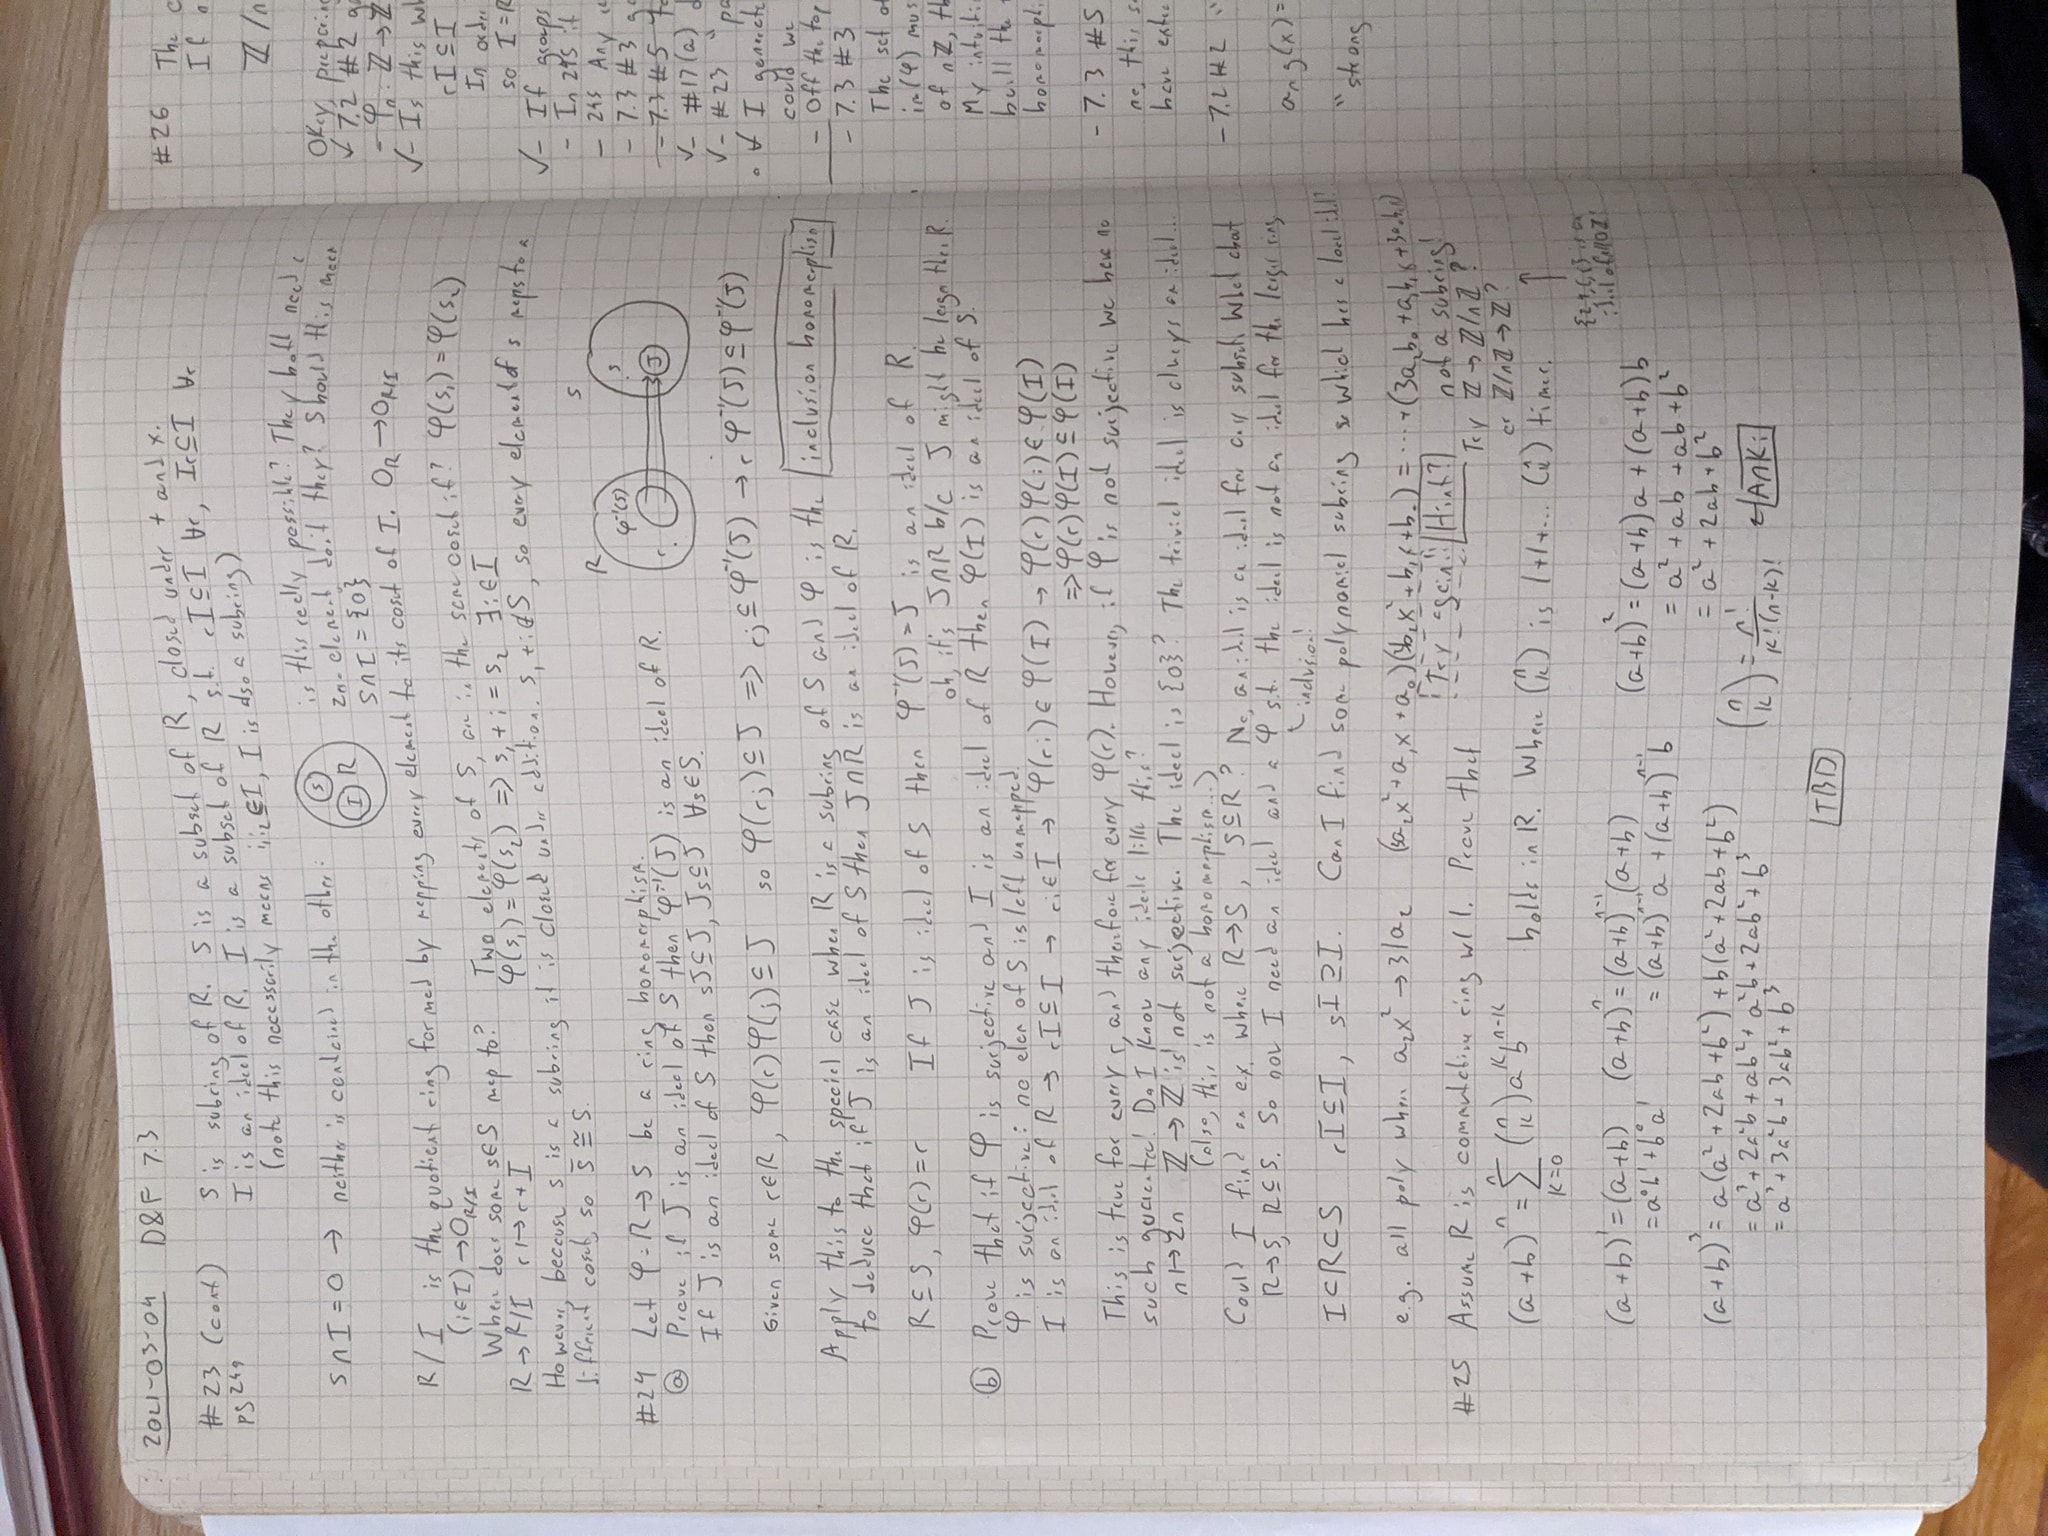 2021-03-04 D&F 7.3
#23 (cont) S is subring of R. S is a subset of R, closed under + and x.
pg 249 I is an ideal of R. I is a subset of R s.t. rI ⊆ I ∀r, Ir ⊆ I ∀r
(note this necessarily means i₁i₂ ∈ I, I is also a subring)
S∩I = 0 → neither is contained in the other:
S
I
R
is this really possible? They both need a
zero element don't they? Should this mean
S∩I = {0}
R/I is the quotient ring formed by mapping every element to its coset of I. 0_R → 0_R/I
(i∈I) → 0_R/I
Where does some s∈S map to? Two elements of S, are in the same coset if? φ(s₁) = φ(s₂)
R → R/I r ↦ r + I φ(s₁) = φ(s₂) ⇒ s₁ + i = s₂ ∃i∈I
However, because S is a subring it is closed under addition. s₁ + i ∉ S, so every element of S maps to a
different coset, so S̅ ≅ S.
#24 Let φ: R → S be a ring homomorphism.
(a) Prove if J is an ideal of S then φ⁻¹(J) is an ideal of R.
If J is an ideal of S then sJ ⊆ J, Js ⊆ J ∀s∈S.
R
φ⁻¹(J)
r.
S
s
J
Given some r∈R, φ(r)φ(j) ⊆ J so φ(rj) ⊆ J ⇒ rj ⊆ φ⁻¹(J) → rφ⁻¹(J) ⊆ φ⁻¹(J)
Apply this to the special case when R is a subring of S and φ is the inclusion homomorphism
to deduce that if J is an ideal of S then J∩R is an ideal of R.
R ⊆ S, φ(r) = r If J is ideal of S then φ⁻¹(J) = J is an ideal of R.
oh, it's J∩R b/c J might be larger than R.
(b) Prove that if φ is surjective and I is an ideal of R then φ(I) is an ideal of S.
φ is surjective: no elem of S is left unmapped.
I is an ideal of R → rI ⊆ I → ri ∈ I → φ(ri) ∈ φ(I) → φ(r)φ(i) ∈ φ(I)
⇒ φ(r)φ(I) ⊆ φ(I)
This is true for every r, and therefore for every φ(r). However, if φ is not surjective we have no
such guarantee! Do I know any ideals like this?
n ↦ 2n ℤ → ℤ is not surjective. The ideal is {0}? The trivial ideal is always an ideal...
(also, this is not a homomorphism...)
Could I find an ex where R → S, S ⊆ R? No, an ideal is an ideal for any subset. What about
R → S, R ⊆ S. So now I need an ideal and a φ s.t. the ideal is not an ideal for the larger ring
↑ inclusion!
I ⊂ R ⊂ S rI ⊆ I, sI ⊇ I. Can I find some polynomial subring so which has a local ideal?
e.g. all poly where a₂x² → 3|a₂ (3a₂x² + a₁x + a₀)(3b₂x² + b₁x + b₀) = ... + (3a₂b₀ + a₁b₁ + 3a₀b₂)
not a subring!
Try again!
Hint?
Try ℤ → ℤ/nℤ?
or ℤ/nℤ → ℤ?
#25 Assume R is commutative ring w/ 1. Prove that
(a+b)ⁿ = Σ_{k=0}^{n} (n k) aᵏbⁿ⁻ᵏ holds in R. Where (n k) is 1+1+... (n k) times.
(a+b)¹ = (a+b) (a+b)ⁿ = (a+b)ⁿ⁻¹(a+b)
= a⁰b¹ + b⁰a¹ = (a+b)ⁿ⁻¹a + (a+b)ⁿ⁻¹b
(a+b)² = (a+b)a + (a+b)b
= a² + ab + ab + b²
= a² + 2ab + b²
(a+b)³ = a(a² + 2ab + b²) + b(a² + 2ab + b²)
= a³ + 2a²b + ab² + a²b + 2ab² + b³
= a³ + 3a²b + 3ab² + b³
(n k) = n!/k!(n-k)! ← ANKi
TBD
#26 The c
If n
ℤ/n
Okay, preparing
✓ 7.2 #2 ga
- φn: ℤ → ℤ
✓ - Is this wh
rI ⊆ I
In orde
so I = R
✓ - If groups
- In 245 it
- 245 Any i
- 7.3 #3 g
- 7.3 #5 fo
✓ - #17(a) d
✓ - #23 " pa
∘ ∀ I generate
could we
- Off the top
- 7.3 #3
The set o
in(φ) mus
of nℤ, th
My intuiti
built the
homomorphi
- 7.3 #5
no, this s
have
- 7.2 #2 "
ang(x) =
"strong